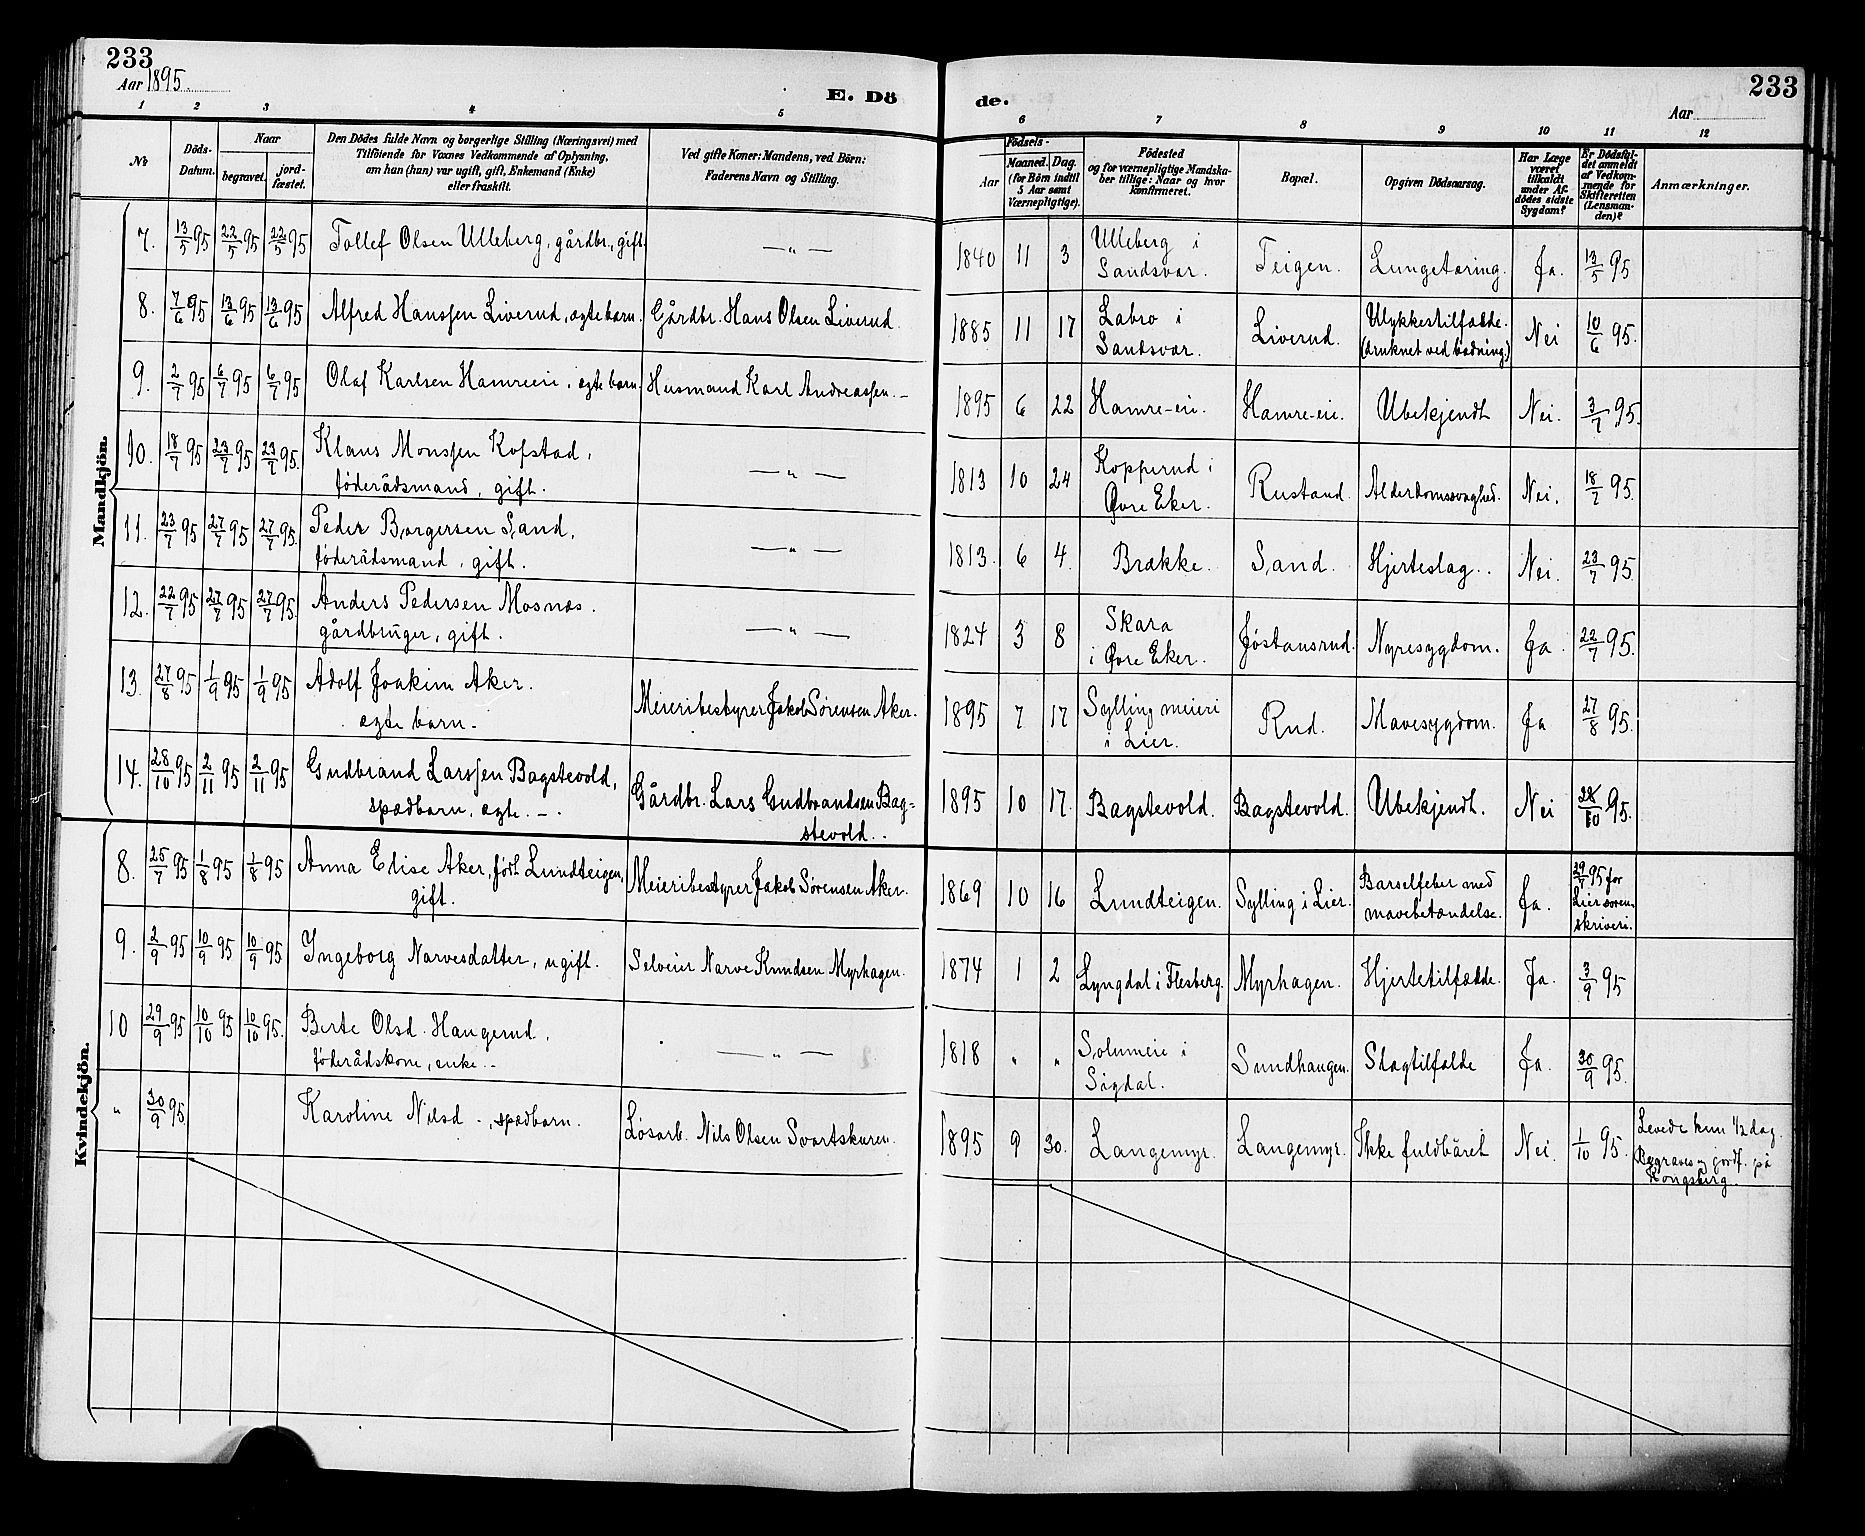 233
Aar 1895.
E. Dö
de.
233
Aar
1 2 3 4 5 6 7 8 9 10 11 12
№
Döds-Datum.
Naar
begravet.
jord-fæstet.
Den Dödes fulde Navn og borgerlige Stilling (Næringsvei) med
Tilföiende for Voxnes Vedkommende af Oplysning,
om han (hun) var ugift, gift, Enkemand (Enke)
eller fraskilt.
Ved gifte Koner: Mandens, ved Börn:
Faderens Navn og Stilling.
Födsels-
Aar
Maaned. Dag.
(for Börn indtil
5 Aar samt
Værnepligtige).
Födested
og for værnepligtige Mandska-
ber tillige: Naar og hvor
konfirmeret.
Bopæl.
Opgiven Dödsaarsag.
Har Læge
været
tilkaldt
under Af-
dödes sidste
Sygdom?
Er Dödsfal-
det anmeldt
af Vedkom-
mende for
Skifteretten
(Lensman-
den)?
Anmærkninger.
Mandkjön.
7. 13/5 95 22/5 95 22/5 95 Tollef Olsen Ulleberg, gårdbr., gift. — „ — 1840 11 3 Ulleberg i Sandsvær. Teigen. Lungetæring. Ja. 13/5 95
8. 7/6 95 13/6 95 13/6 95 Alfred Hanssen Liverud, ægte barn. Gårdbr. Hans Olsen Liverud. 1885 11 17 Labro i Sandsvær. Liverud. Ulykkestilfælde. (druknet ved badning.) Nei 10/6 95.
9. 2/7 95 6/7 95 6/7 95 Olaf Karlsen Hamreeie, ægte barn. Husmand Karl Andreassen. — 1895 6 22 Hamre-eie. Hamre-eie. Ubekjendt Nei. 3/7 95.
10. 18/7 95 23/7 95 23/7 95. Klaus Monssen Kofstad,
føderådsmand, gift. — „ — 1813 10 24 Kopperud i Øvre Eker. Rustand. Alderdomssvaghed. Nei. 18/7 95.
11. 23/7 95 27/7 95 27/7 95. Peder Børgersen Sand,
føderådsmand, gift. — „ — 1813. 6 4. Brække. Sand. Hjerteslag. Nei. 23/7 95.
12. 22/7 95 27/7 95 27/7 95. Anders Pedersen Mosnæs.
gårdbruger, gift. — „ — 1824 3 8 Skara i Øvre Eker. Jøstansrud. Nyresygdom. Ja. 22/7 95.
13. 27/8 95 1/9 95 1/9 95 Adolf Joakim Aker.
ægte barn. Meieribestyrer Jakob Sørensen Aker. 1895 7 17 Sylling meieri i Lier. Rud. Mavesygdom. Ja 27/8 95.
14. 28/10 95 2/11 95 2/11 95 Gudbrand Larssen Bagstevold,
spædbarn, ægte. Gårdbr. Lars Gudbrandsen Bag=
stevold. 1895 10 17. Bagstevold. Bagstevold. Ubekjendt. Nei 28/10 95.
Kvindekjön.
8. 25/7 95 1/8 95 1/8 95 Anna Elise Aker, født Lundteigen,
gift. Meieribestyrer Jakob Sørensen Aker. 1869 10 16 Lundteigen. Sylling i Lier. Barselfeber med mavebetændelse. Ja. 29/7 95 for Lier soren-skriveri.
9. 2/9 95 10/9 95 10/9 95 Ingeborg Narvesdatter, ugift. Selveier Narve Knudsen Myrhagen. 1874 1 2 Lyngdal i Flesberg. Myrhagen. Hjertetilfælde. Ja. 3/9 95
10 29/9 95 10/10 95 10/10 95. Berte Olsd. Haugerud,
føderådskone, enke. — „ — 1818 „ „ Solumeie i Sigdal. Sundhaugen. Slagtilfælde Ja. 30/9 95.
„ 30/9 95. Karoline Nilsd., spædbarn. Løsarb. Nils Olsen Svartskuren. 1895 9 30. Langemyr. Langemyr. Ikke fuldbåret Nei. 1/10 95. Levede kun 1/2 dag.
Begraves og jordf. på
Kongsberg.